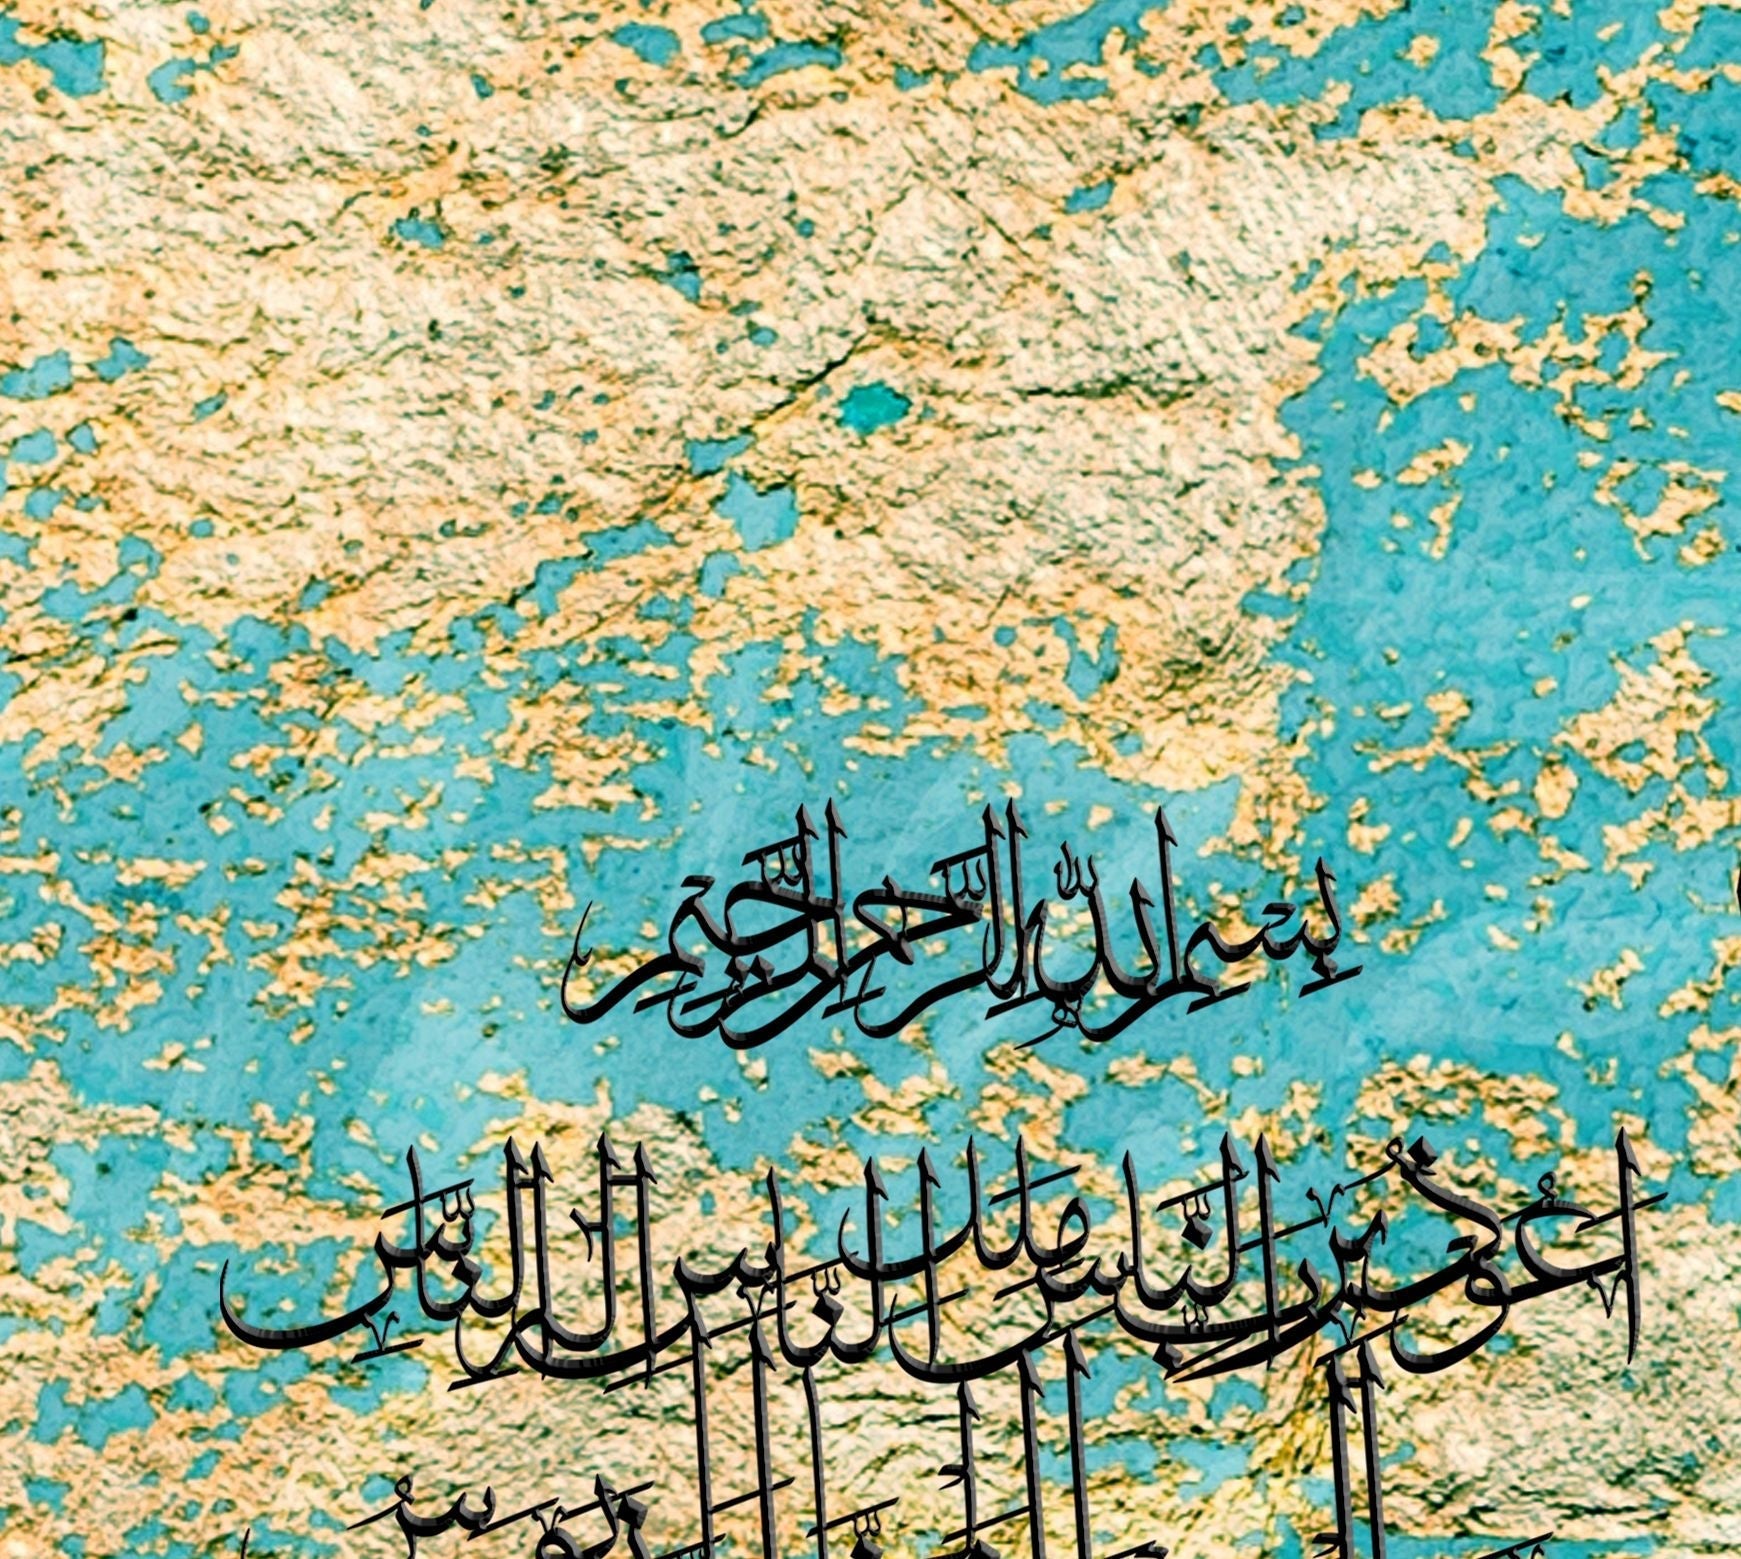 بِسْمِ اللّٰهِ الرَّحْمٰنِ الرَّحِيْمِ
اَعُوْذُ بِرَبِّ النَّاسِ مَلِكِ النَّاسِ اِلٰهِ النَّاسِ